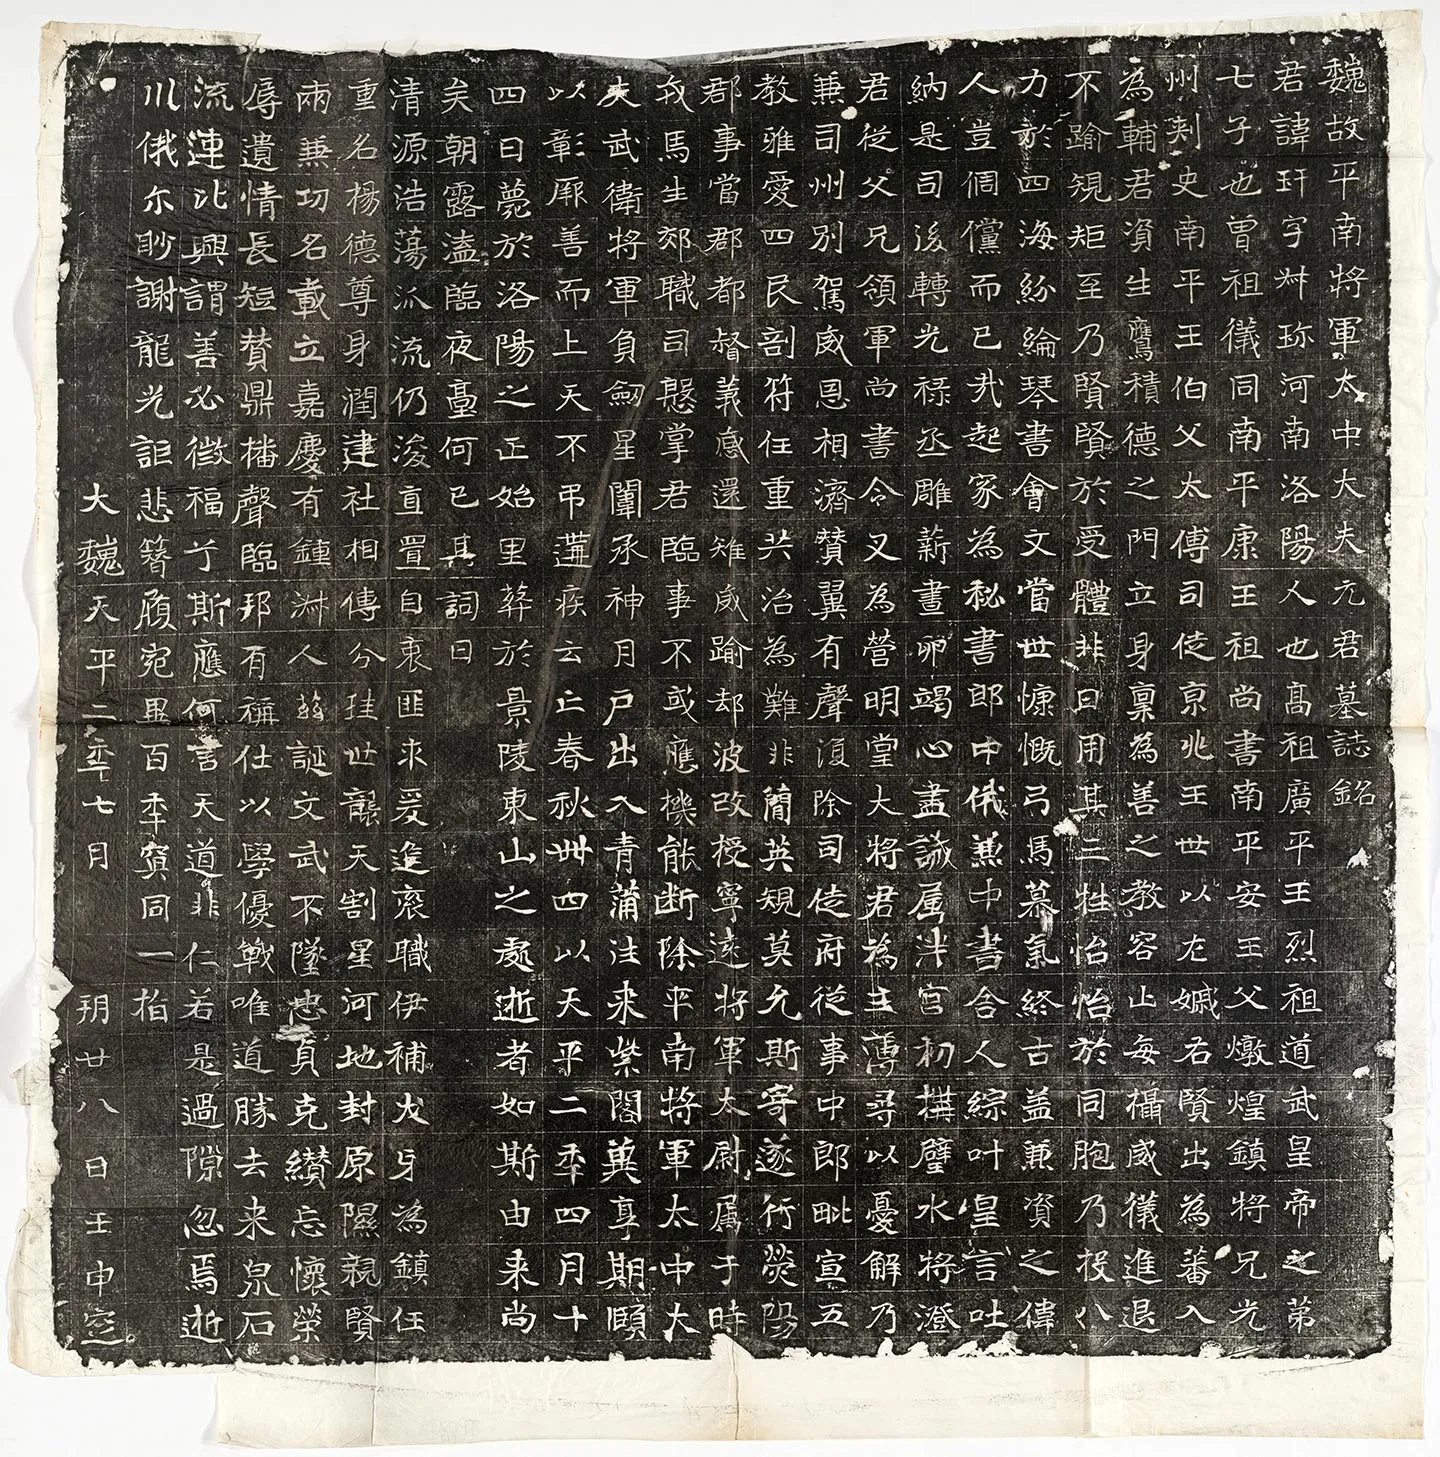 魏故平南將軍太中大夫元君墓誌銘
君諱玕字叔珍河南洛陽人也高祖廣平王烈祖道武皇帝之弟
七子也曾祖儀同南平康王祖尚書南平安王父燉煌鎮將兄光
州刾史南平王伯父太傅司徒京兆王世以左嬪右賢出為蕃入
為輔君資生鷹積德之門立身稟為善之教容止每攝威儀進退
不踰規矩至乃賢賢於受體非曰用其三牲怡怡於同胞乃投八
力於四海紛綸琴書會文當世慷慨弓馬慕氣終古盖兼資之傳
人豈倜儻而已我起家為秘書郎中俄兼中書舍人綜叶皇言吐
納是司後轉光祿丞雕薪晝卵竭心盡誠属泮宮初構璧水將澄
君從父兄領軍尚書令又為營明堂大將君為主薄尋以憂解乃
兼司州別駕威恩相濟贊翼有聲湏除司徒府從事中郎毗宣五
教雅愛四民剖符任重共治為難非簡英規莫允斯寄遂行熒陽
郡事當郡都督義感還雉威踰却波改授寧遠將軍太尉属于時
戎馬生郊職司慇掌君臨事不或應機能断除平南將軍太中大
夫武衛將軍負劒星闈承神月戶出入青蒲注来紫閣冀享期頤
以彰厥善而上天不弔遘疾云亡春秋卌四以天平二秊四月十
四日薨於洛陽之正始里葬於景陵東山之處逝者如斯由来尚
矣朝露溘臨夜臺何已其詞曰
清源浩蕩泒流仍浚直置自衷匪求爰進衮職伊補犬牙為鎮任
重名楊德尊身潤建社相傳分珪世襲天割星河地封原隰親賢
兩兼功名載立嘉慶有鍾淋人茲誕文武不墜忠貞克纘忘懷榮
辱遺情長短贊鼎播聲臨邦有稱仕以學優戰唯道勝去来泉石
流連比興謂善必徵福亍斯應何言天道非仁若是過隙忽焉逝
川俄尓眇謝龍光詎悲簪履宛畢百秊賓同一栢
大魏天平二秊七月朔廿八日壬申窆